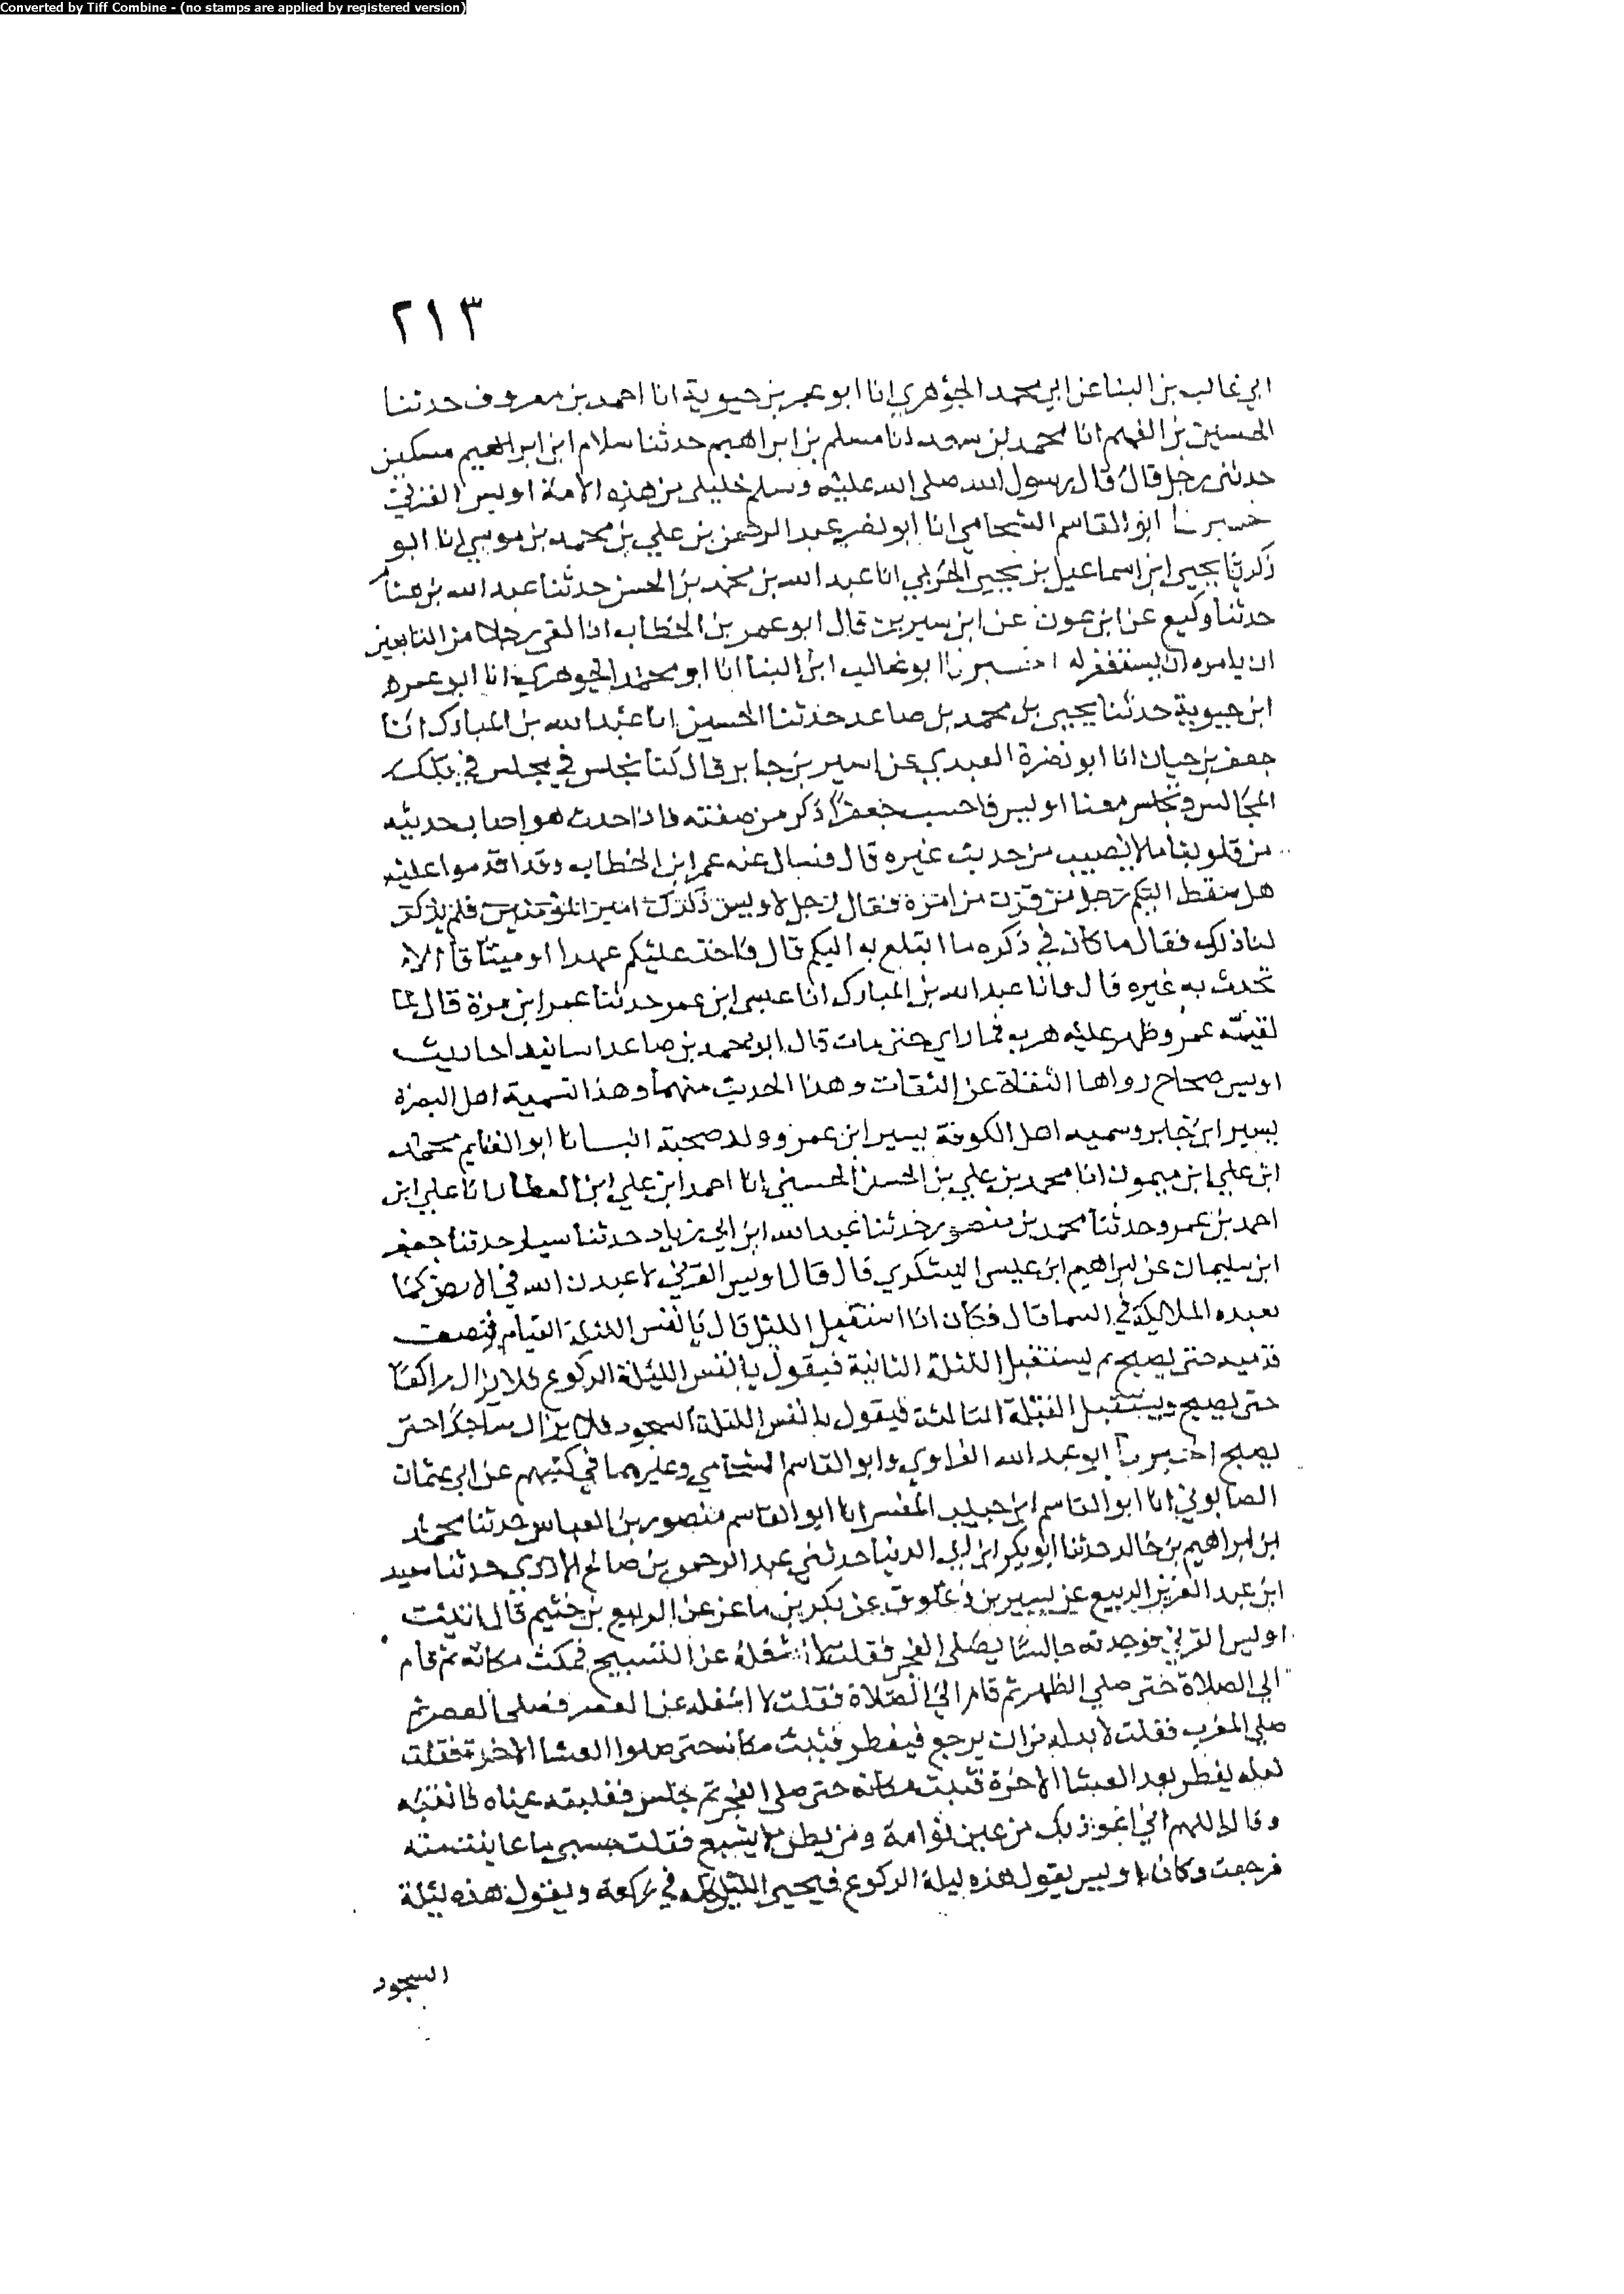 Converted by Tiff Combine - (no stamps are applied by registered version)
٢١٣
ابي غالب بن البنا عن ابي محمد الجوهري انا ابو عمر بن حيوية انا احمد بن معروف حدثنا
الحسين بن الفهم انا محمد بن سعد انا مسلم بن ابراهيم حدثنا سلام ابن ابراهيم مسكين
حدثني رجل قال قال رسول الله صلى الله عليه وسلم خليلي من هذه الامة اويس القرني
خبرنا ابو القاسم الشحامي انا ابو نصر عبد الرحمن بن علي بن محمد بن موسي انا ابو
زكريا يحيى ابن اسماعيل بن يحيى الحربي انا عبد الله بن محمد بن الحسن حدثنا عبد الله بن هشام
حدثنا وكيع عن ابن عون عن ابن سيرين قال ابو عمر بن الخطاب اذا لقى رجلا من التابعين
ان يامره ان يستغفر له اخبرنا ابو غالب ابن البنا انا ابو محمد الجوهري انا ابو عمره
ابن حيوية حدثنا يحيى بن محمد بن صاعد حدثنا الحسين انا عبد الله بن المبارك انا
جعفر بن حيان انا ابو نضرة العبدي عن اسير بن جابر قال كنا نجلس في مجلس في تلك
المجالس ونجلس معنا اويس فاحسب جعفرا ذكر من صفته فاذا حدث هو اصاب حديثه
من قلوبنا ما لا يصيب من حديث غيره قال فسال عنه عمر ابن الخطاب وقد اقدموا عليه
هل سقط اليكم رجل من قرن من امره فقال رجل لاويس ذكرك امير المومنين فلم يذكر
لنا ذلك فقال ما كان في ذكره ما ابتلع به اليكم قال فاخذ عليكم عهدا او ميثاقا الا
تحدث به غيره قال وانا عبد الله بن المبارك انا عيسى ابن عمر حدثنا عمر ابن مرة قال لما
لقيه عمر وظهر عليه هرب فما راي حتى مات قال ابو محمد بن صاعد اسانيد احاديث
اويس صحاح رواها الثقاة عن الثقات وهذا الحديث منهما وهذا تسمية اهل البصرة
يسير ابن جابر وسميه اهل الكوفة يسير ابن عمر وولد صحبة انبانا ابو الغنايم محمد
ابن علي ابن ميمون انا محمد بن علي بن الحسن الحسيني انا احمد ابن علي ابن العطار انا علي ابن
احمد بن عمر وحدثنا محمد بن منصور حدثنا عبد الله ابن ابي زياد حدثنا سيار حدثنا جعفر
ابن سليمان عن ابراهيم ابن عيسى اليشكري قال قال اويس القرني لاعبدن الله في الارض كما
تعبده الملايكة في السما قال فكان اذا استقبل الليل قال يا نفس الليلة القيام فيصف
قدميه حتى يصبح ثم يستقبل الليلة الثانية فيقول يا نفس الليلة الركوع فلا يزال راكعا
حتى يصبح ويستقبل الليلة الثالثة فيقول يا نفس الليلة السجود فلا يزال ساجدا حتى
يصبح اخبرنا ابو عبد الله الفراوي وابو القاسم الشحامي وغيرهما في كتبهم عن ابي عثمان
الصابوني انا ابو القاسم ابن حبيب المفسر انا ابو القاسم منصور بن العباس حدثنا محمد
بن ابراهيم بن خالد حدثنا ابو بكر ابن ابي الدنيا حدثني عبد الرحمن بن صالح الازدي حدثنا سعيد
ابن عبد العزيز الربيع عن يسير بن ذعلوق عن بكر بن ماعز عن الربيع بن خثيم قال اتيت
اويس القرني فوجدته جالسا يصلى الفجر فقلت لا اشغله عن التسبيح فمكث مكانه ثم قام
الي الصلاة حتى صلي الظهر ثم قام الي الصلاة فقلت لا اشغله عن العصر فصلى العصر ثم
صلي المغرب فقلت لا بد له من ان يرجع فيفطر فثبت مكانه حتى صلوا العشا الاخرة فقلت
لعله يفطر بعد العشا الاخرة فثبت مكانه حتى صلى الفجر ثم جلس فغلبته عيناه فانتبه
وقال اللهم اني اعوذ بك من عين نوامة ومن بطن لا يشبع فقلت حسبي ما عاينت منه
فرجعت وكان اويس يقول هذه ليلة الركوع فيحيى الليل كله في ركعة ويقول هذه ليلة
السجود